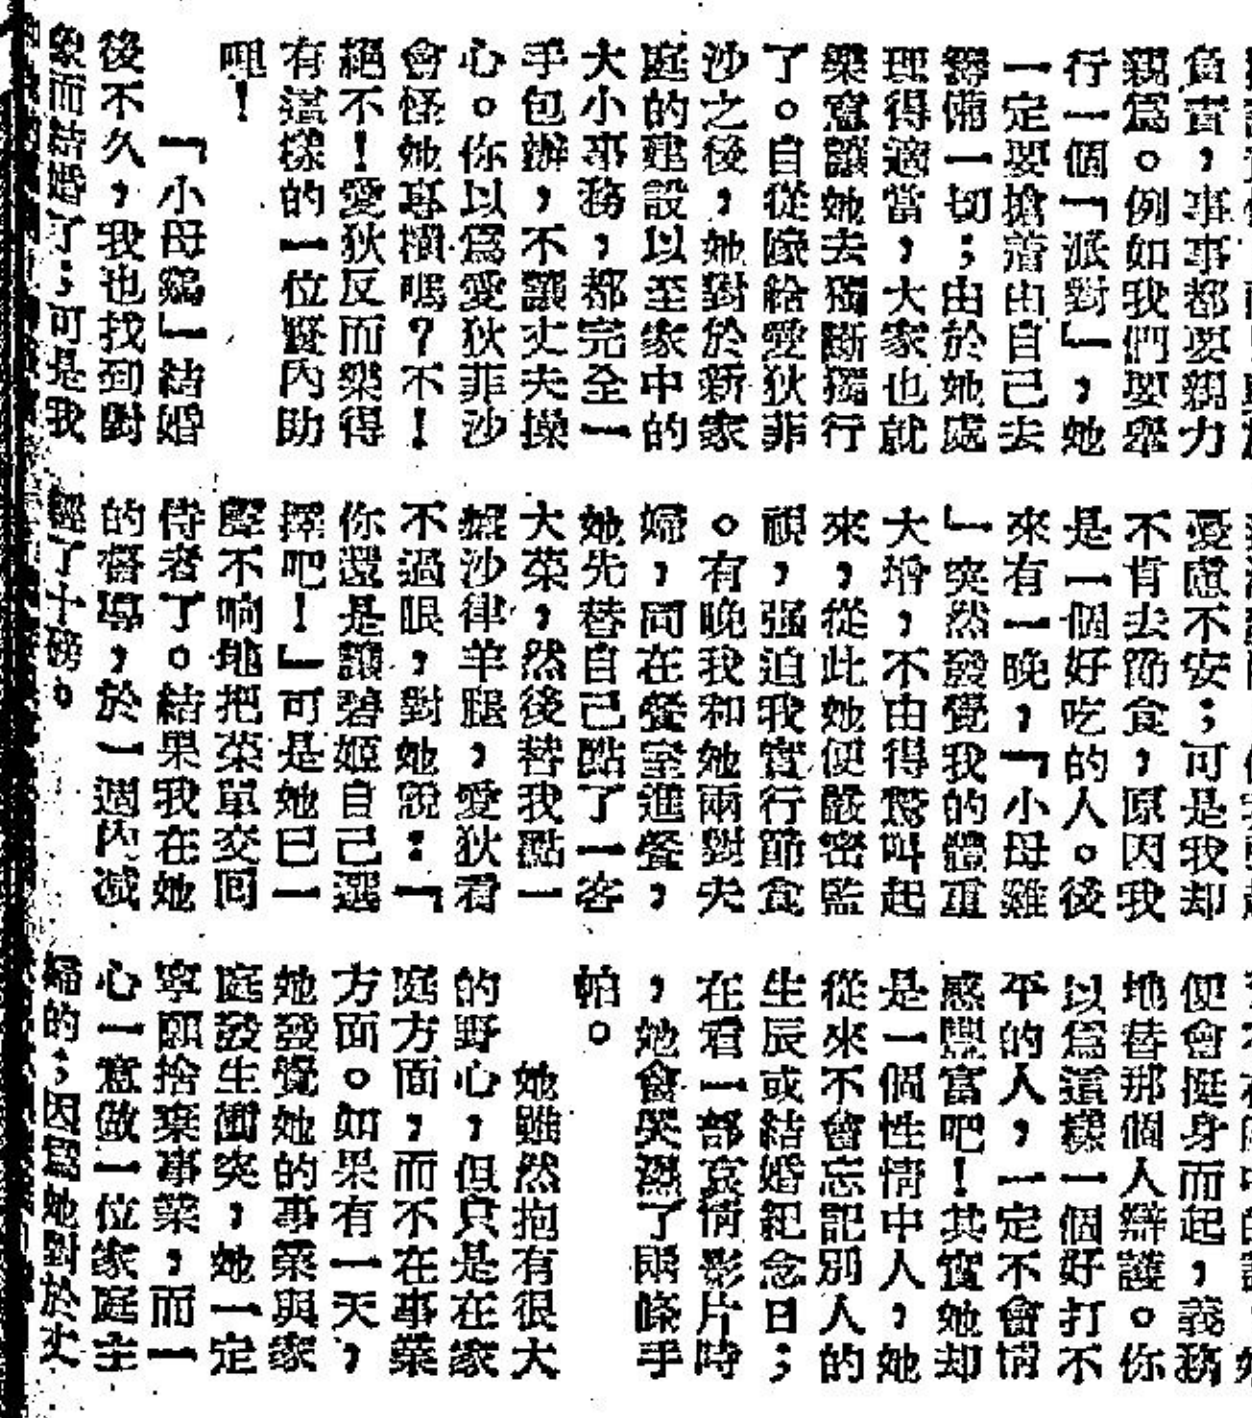 負責，事事都要親力
親爲。例如我們要舉
行一個「派對」，她
一定要搶着由自己去
籌備一切；由於她處
理得適當，大家也就
樂意讓她去獨斷獨行
了。自從嫁給愛狄菲
沙之後，她對於新家
庭的建設以至家中的
大小事務，都完全一
手包辦，不讓丈夫操
心。你以爲愛狄菲沙
會怪她專橫嗎？不！
絕不！愛狄反而樂得
有這樣的一位賢內助
哩！
「小母鷄」結婚
後不久，我也找到對
象而結婚了；可是我
憂慮不安；可是我却
不肯去節食，原因我
是一個好吃的人。後
來有一晚，「小母雞
」突然發覺我的體重
大增，不由得驚叫起
來，從此她便嚴密監
視，强迫我實行節食
。有晚我和她兩對夫
婦，同在餐室進餐，
她先替自己點了一客
大菜，然後替我點一
碟沙律羊腿，愛狄看
不過眼，對她說：「
你還是讓碧姬自己選
擇吧！」可是她已一
聲不响地把菜單交回
侍者了。結果我在她
的督導，於一週內減
輕了十磅。
便會挺身而起，義務
地替那個人辯護。你
以爲這樣一個好打不
平的人，一定不會情
感豐富吧！其實她却
是一個性情中人，她
從來不會忘記別人的
生辰或結婚紀念日；
在看一部哀情影片時
，她會哭濕了兩條手
帕。
她雖然抱有很大
的野心，但只是在家
庭方面，而不在事業
方面。如果有一天，
她發覺她的事業與家
庭發生衝突，她一定
寧願捨棄事業，而一
心一意做一位家庭主
婦的；因爲她對於丈